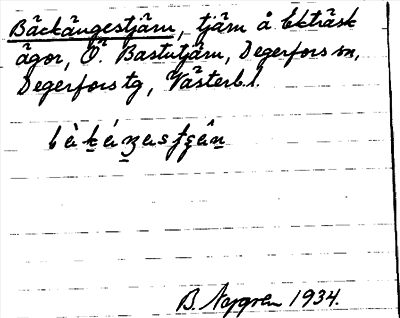 Bäckängestjärn, tjärn å Lekträsk
ägor, Ö. Bastutjärn, Degerfors sn,
Degerfors tg, Västerb. l.
B. Nygren 1934.